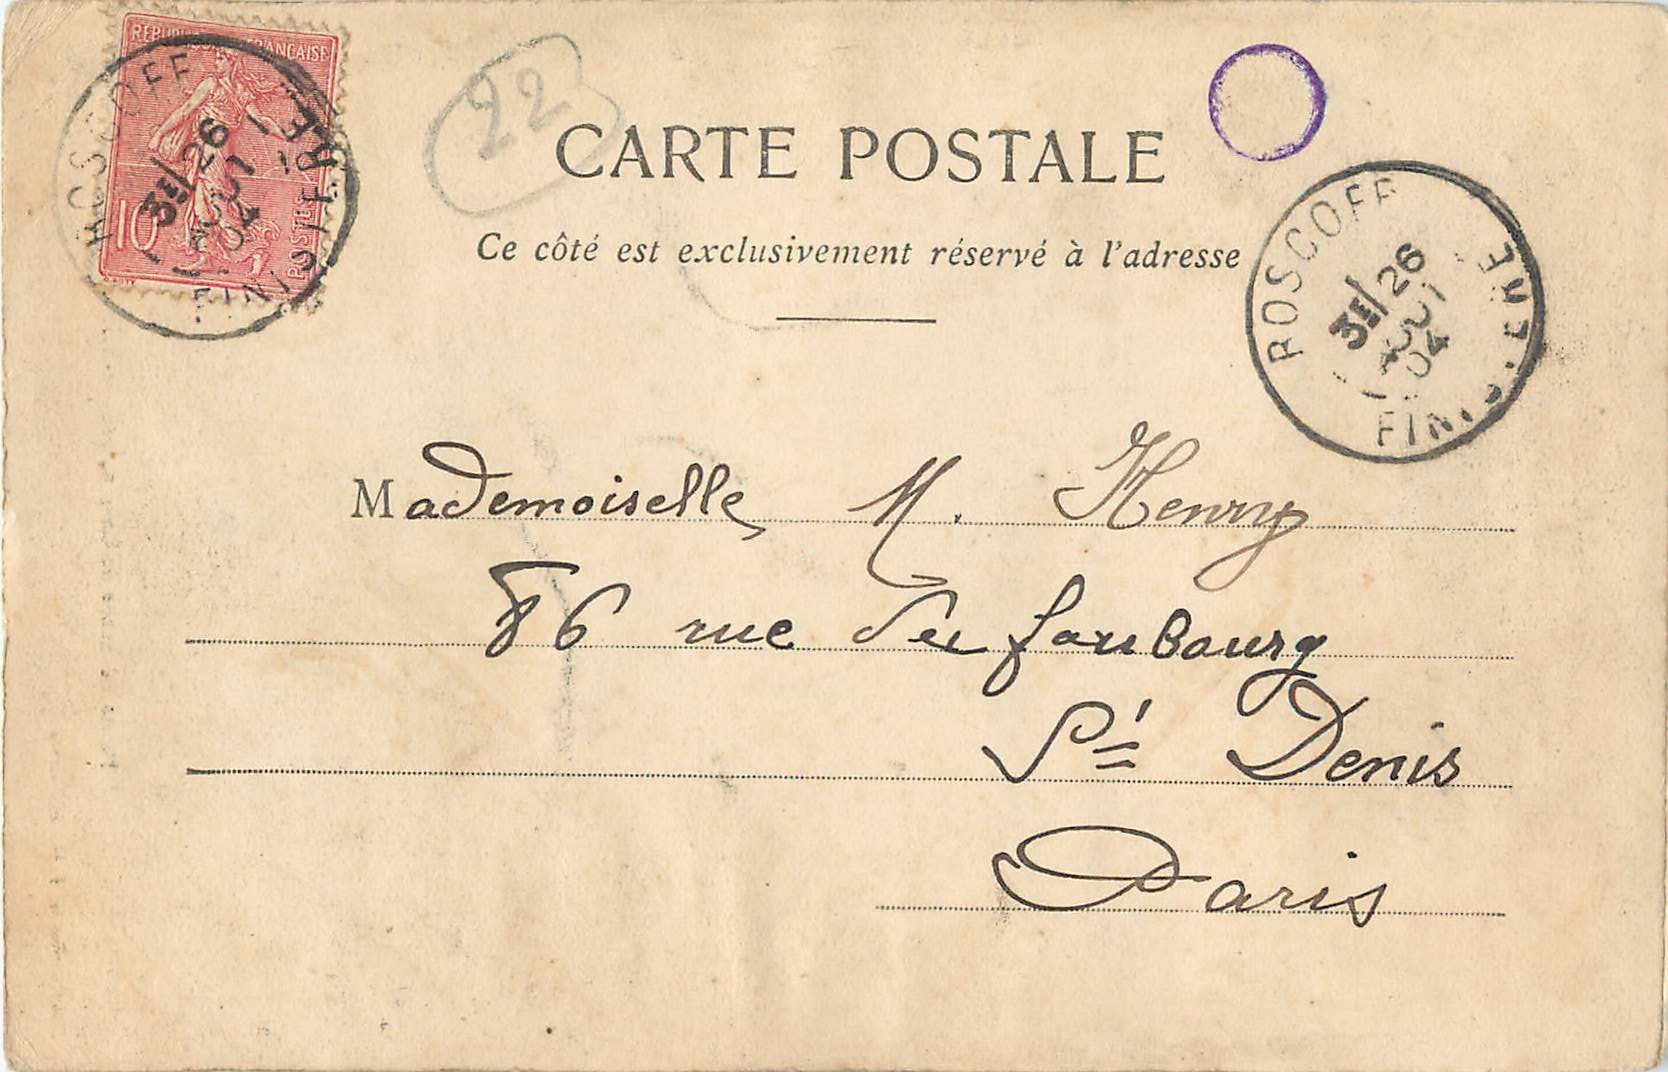 RÉPUBLIQUE FRANÇAISE
10
POSTES
ROSCOFF
3E/26
AOUT
04
FINISTERE
22
CARTE POSTALE
Ce côté est exclusivement réservé à l'adresse
ROSCOFF
3E/26
AOUT
04
FINISTERE
Mademoiselle M. Henry
86 rue du faubourg
St Denis
Paris